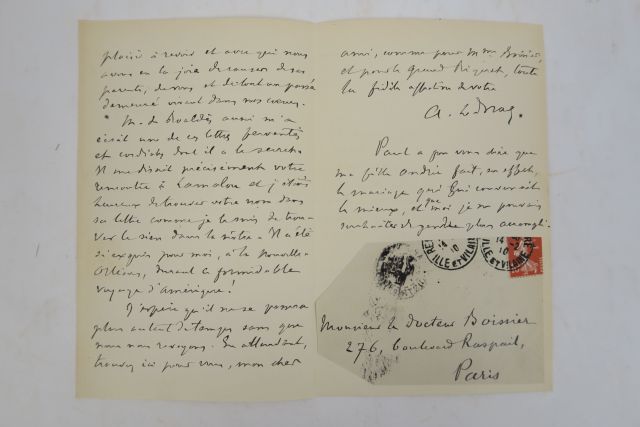 plaisir à revoir et avec qui nous
avons eu la joie de causer de ses
parents, de vous et de tout un passé
demeuré vivant dans nos cœurs.
M. de aussi m'a
écrit une de ces lettres ferventes
et cordiales dont il a le secret.
Il me disait précisément votre
rencontre à Lamalou et j'étais
heureux de trouver votre nom dans
sa lettre comme je le suis de trou-
ver le sien dans la vôtre. Il a été
si exquis pour moi, à la Nouvelle
Orléans, durant ce formidable
voyage d'Amérique!
J'espère qu'il ne se passera
plus autant de temps sans que
nous nous revoyons. En attendant,
trouvez ici pour vous, mon cher
ami, comme pour Mme Boissier,
et pour le grand, toute
la fidèle affection de votre
A. Le Braz.
Paul a pu vous dire que
ma fille Andrée fait, en effet,
le mariage qui lui convenait
le mieux, et que moi je ne pouvais
souhaiter de gendre plus accompli.
ILLE ET VILAINE
14
10
Monsieur le docteur Boissier
276, boulevard Raspail,
Paris